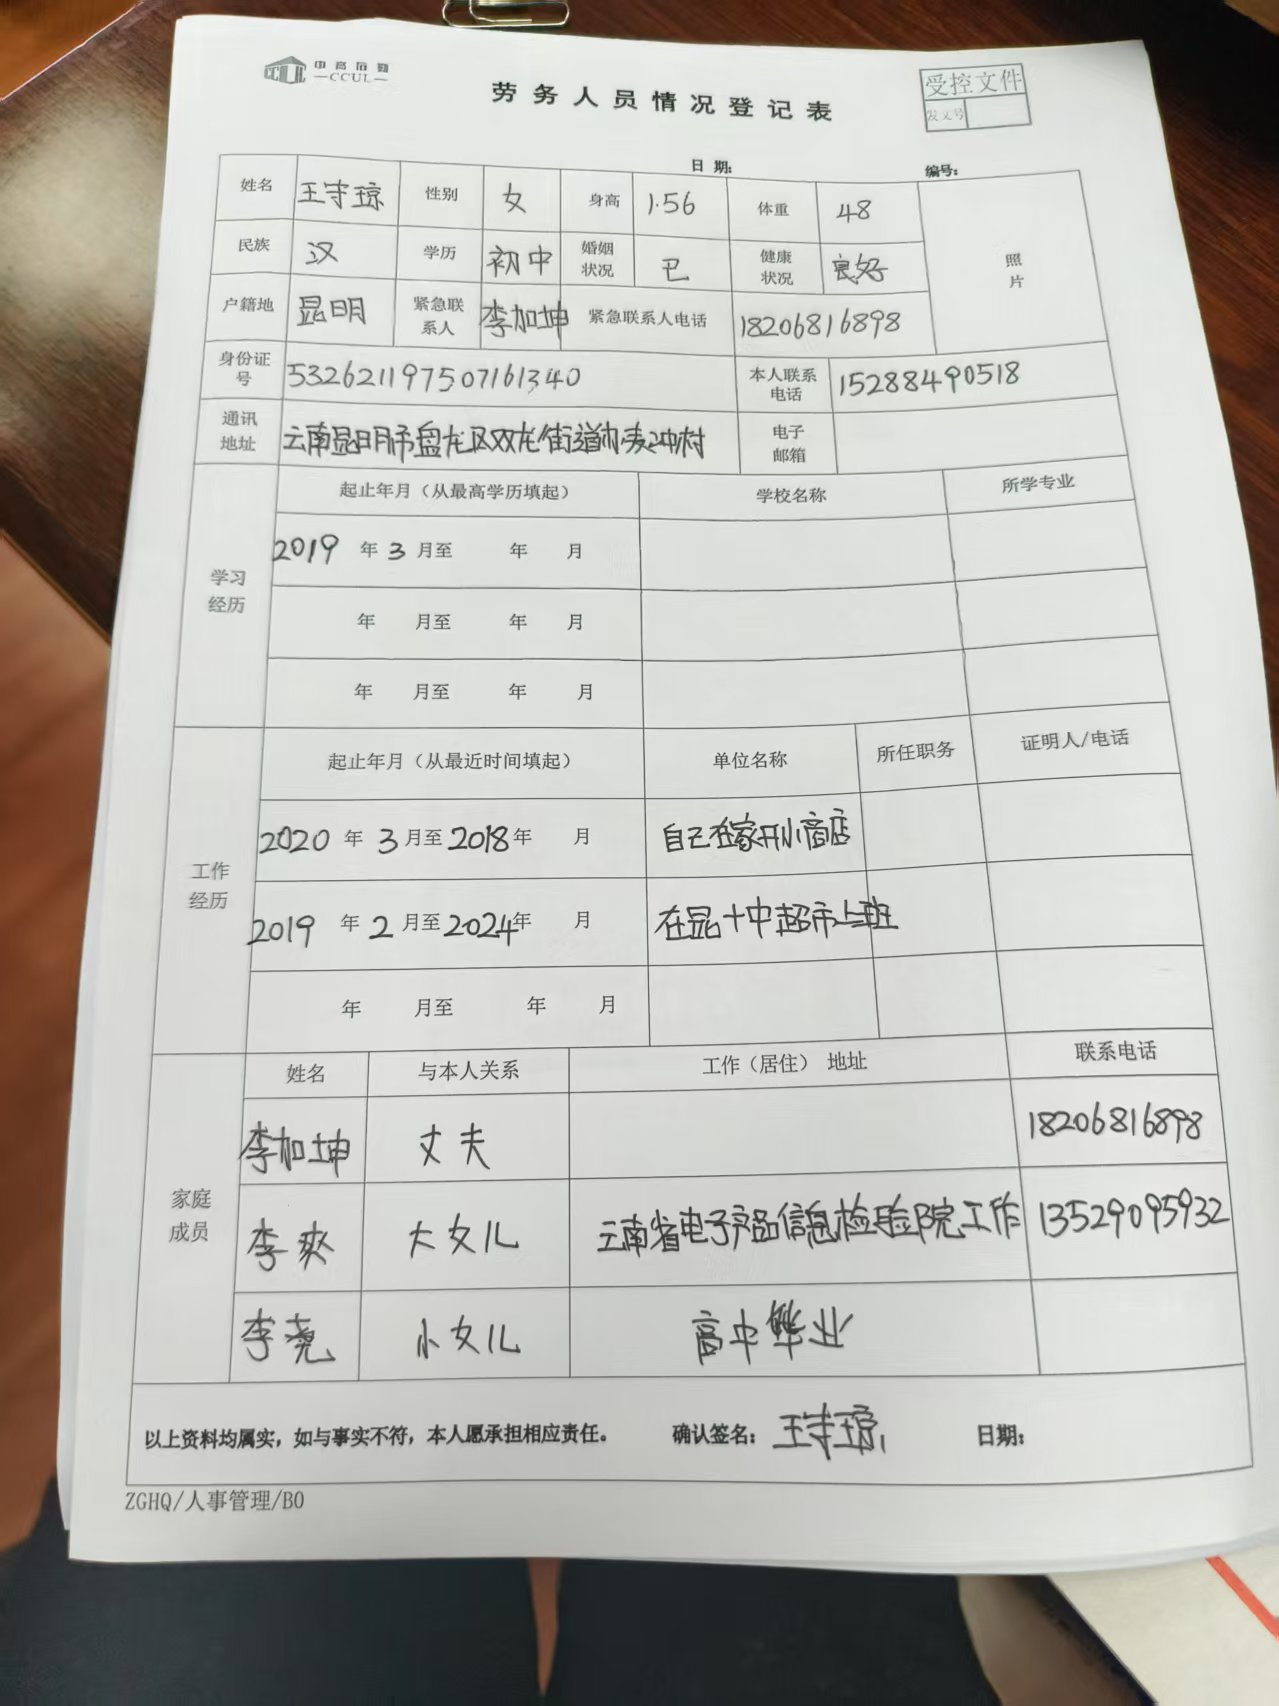 中高后勤
CCUL
劳务人员情况登记表
受控文件
发文号
日 期: 编号:
姓名 王守琼 性别 女 身高 1.56 体重 48
民族 汉 学历 初中 婚姻状况 已 健康状况 良好 照片
户籍地 昆明 紧急联系人 李加坤 紧急联系人电话 18206816898
身份证号 532621197507161340 本人联系电话 15288490518
通讯地址 云南昆明市盘龙区双龙街道办麦冲村 电子邮箱
学习经历 起止年月（从最高学历填起） 学校名称 所学专业
2019 年 3 月至 年 月
年 月至 年 月
年 月至 年 月
工作经历 起止年月（从最近时间填起） 单位名称 所任职务 证明人/电话
2020 年 3 月至 2018 年 月 自己在家开小商店
2019 年 2 月至 2024 年 月 在昆十中超市上班
年 月至 年 月
家庭成员 姓名 与本人关系 工作（居住） 地址 联系电话
李加坤 丈夫 18206816898
李爽 大女儿 云南省电子产品信息检验院工作 13529095932
李尧 小女儿 高中毕业
以上资料均属实，如与事实不符，本人愿承担相应责任。 确认签名: 王守琼 日期:
ZGHQ/人事管理/B0